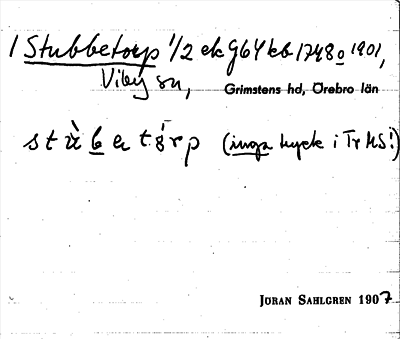 1 Stubbetorp 1/2 ek Gb4 kb 1748 o 1901,
Viby sn, Grimstens hd, Örebro län
stùbetórp (inga tryck i Tr MS!)
JÖRAN SAHLGREN 1907